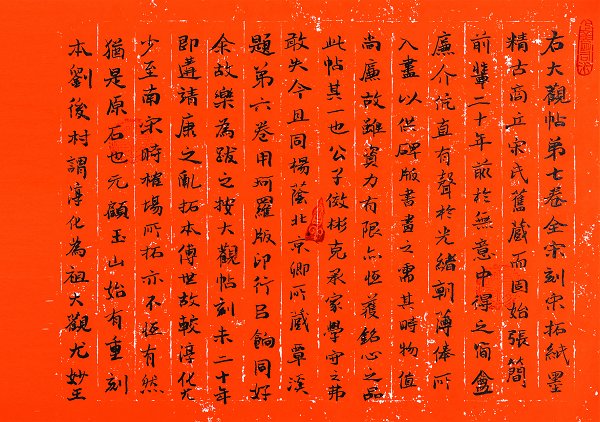 右大觀帖第七卷全宋刻宋拓紙墨
精古商丘宋氏舊藏而固始張簡
前輩二十年前於無意中得之簡盦
廉介伉直有聲於光緒朝薄俸所
入盡以供碑版書畫之需其時物值
尚廉故雖資力有限亦恆獲銘心之品
此帖其一也公子傚彬克承家學守之弗
敢失今且同楊蔭北京卿所藏覃溪
題第六卷用珂羅版印行㠯餉同好
余故樂為跋之按大觀帖刻未二十年
即遘靖康之亂拓本傳世故較淳化尤
少至南宋時榷場所拓亦不恆有然
猶是原石也元顧玉山始有重刻
本劉後村謂淳化為祖大觀尤妙王